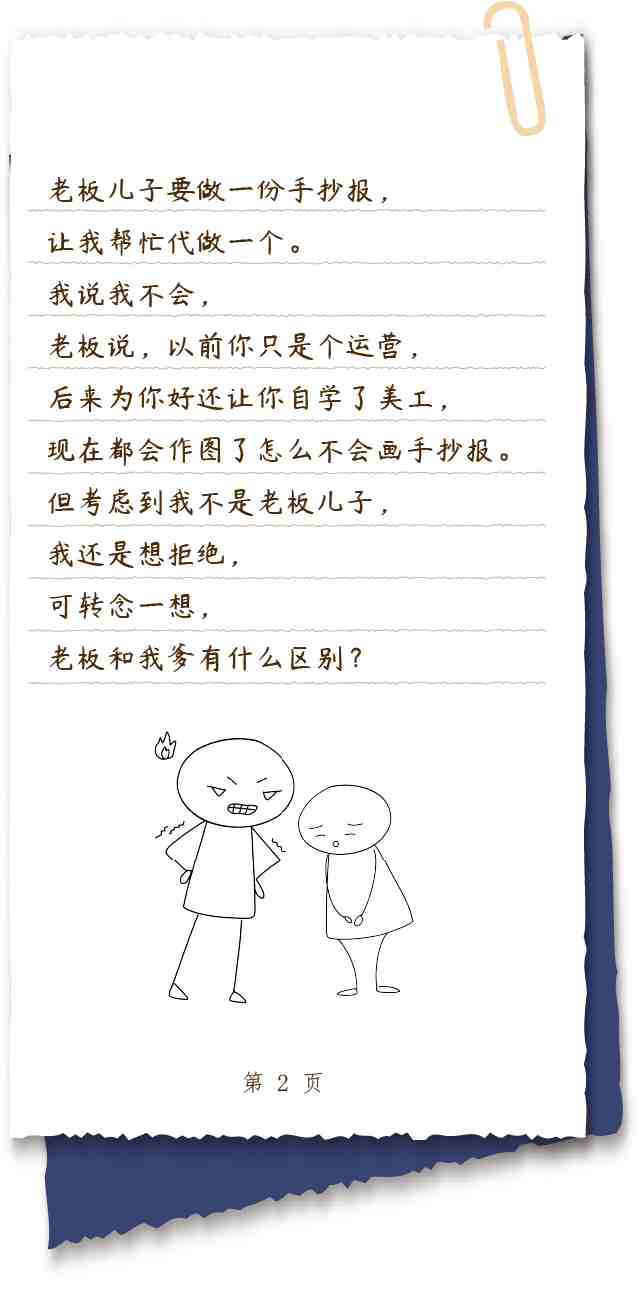 老板儿子要做一份手抄报，
让我帮忙代做一个。
我说我不会，
老板说，以前你只是个运营，
后来为你好还让你自学了美工，
现在都会作图了怎么不会画手抄报。
但考虑到我不是老板儿子，
我还是想拒绝，
可转念一想，
老板和我爹有什么区别？
第 2 页